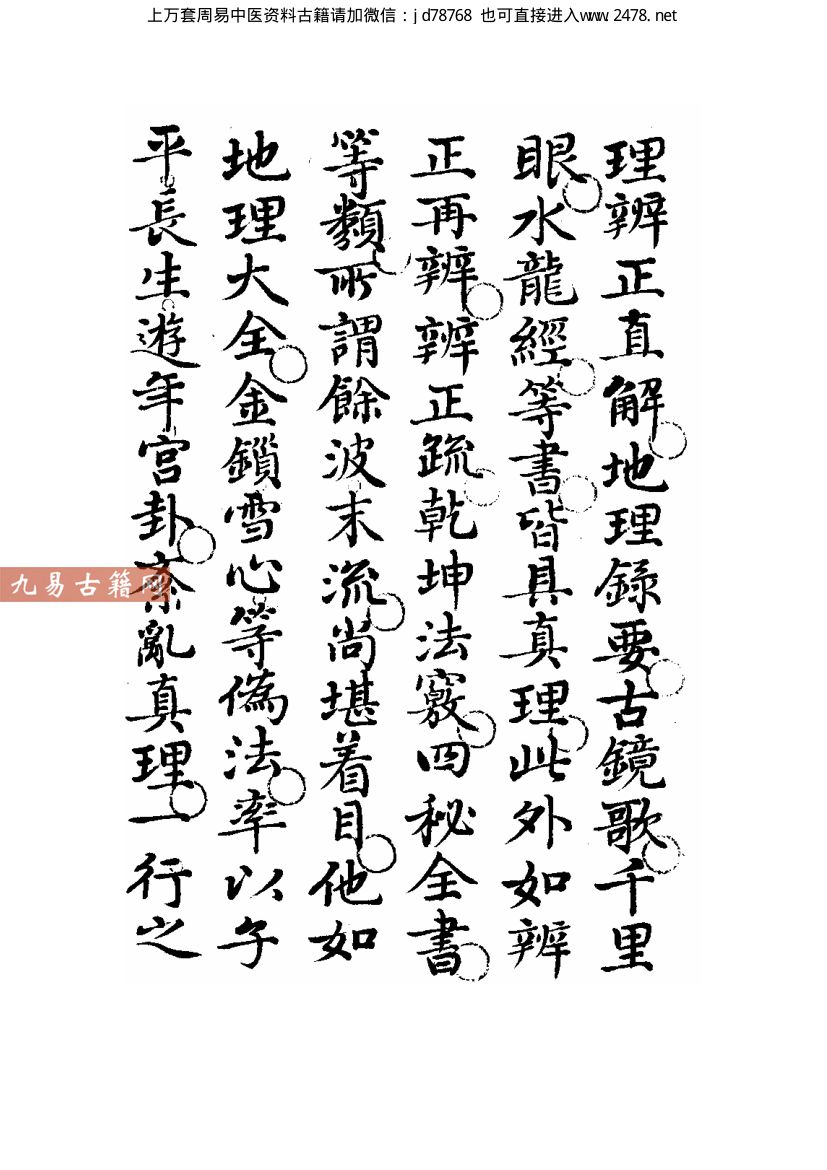 上万套周易中医资料古籍请加微信：jd78768 也可直接进入www.2478.net
理辨正直解地理録要古鏡歌千里
眼水龍經等書皆具真理此外如辨
正再辨辨正疏乾坤法竅四秘全書
等類所謂餘波末流尚堪着目他如
地理大全金鎖雪心等偽法率以子
平長生遊年宫卦紊亂真理一行之
九易古籍网